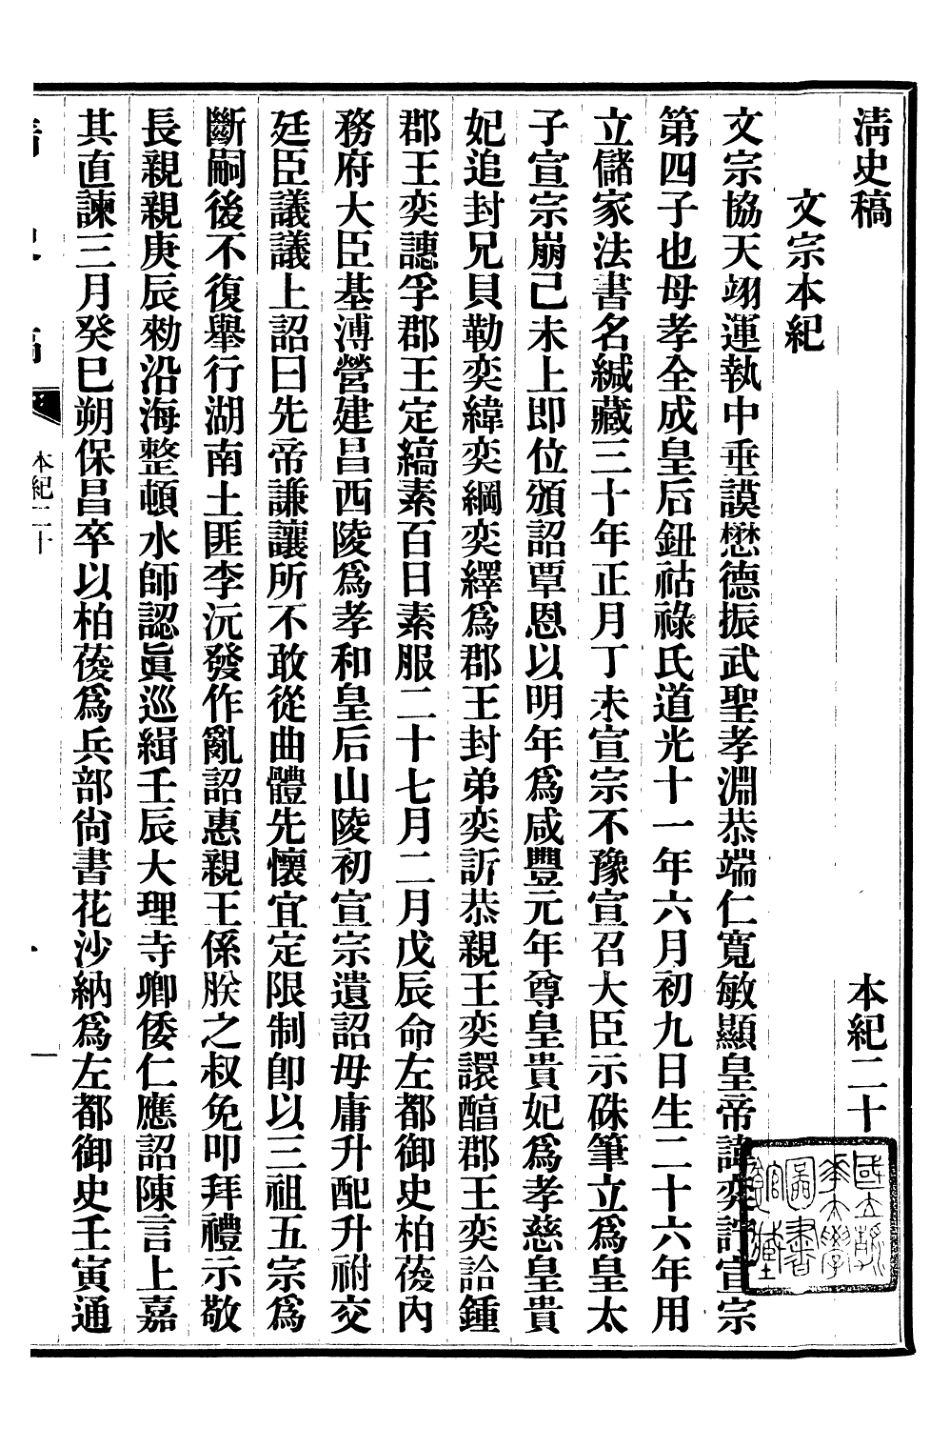 清史稿　本紀二十
文宗本紀
文宗協天翊運執中垂謨懋德振武聖孝淵恭端仁寬敏顯皇帝諱奕詝宣宗
第四子也母孝全成皇后鈕祜祿氏道光十一年六月初九日生二十六年用
立儲家法書名緘藏三十年正月丁未宣宗不豫宣召大臣示硃筆立爲皇太
子宣宗崩己未上即位頒詔覃恩以明年爲咸豐元年尊皇貴妃爲孝慈皇貴
妃追封兄貝勒奕緯奕綱奕繹爲郡王封弟奕訢恭親王奕譞醇郡王奕詥鍾
郡王奕譓孚郡王定縞素百日素服二十七月二月戊辰命左都御史柏葰內
務府大臣基溥營建昌西陵爲孝和皇后山陵初宣宗遺詔毋庸升配升祔交
廷臣議議上詔曰先帝謙讓所不敢從曲體先懷宜定限制卽以三祖五宗爲
斷嗣後不復舉行湖南土匪李沅發作亂詔惠親王係朕之叔免叩拜禮示敬
長親親庚辰勑沿海整頓水師認眞巡緝壬辰大理寺卿倭仁應詔陳言上嘉
其直諫三月癸巳朔保昌卒以柏葰爲兵部尙書花沙納爲左都御史壬寅通
清史稿　本紀二十　一
國立清華大學圖書館藏